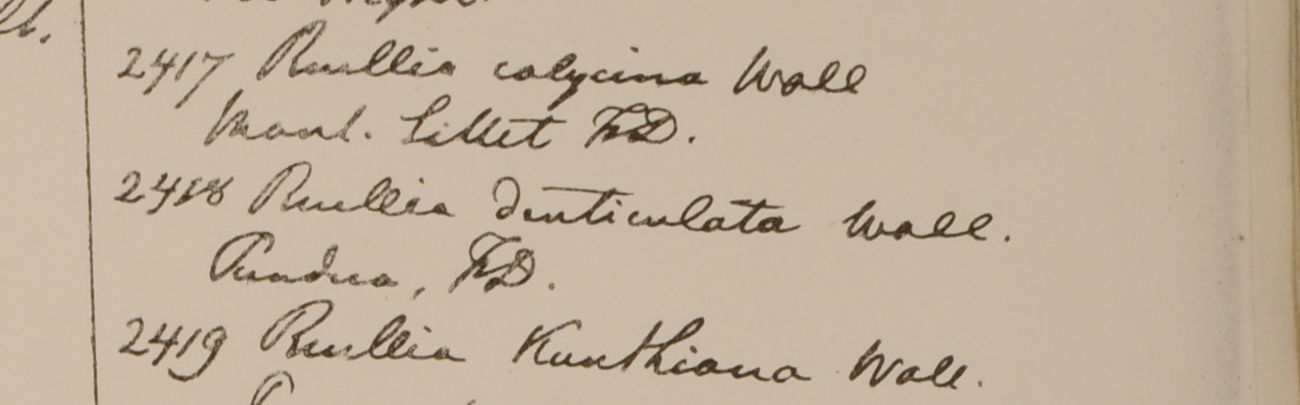 2417 Ruellia calycina Wall
Mont. Sillet FD.
2418 Ruellia denticulata Wall.
Pundua, FD.
2419 Ruellia Kunthiana Wall.